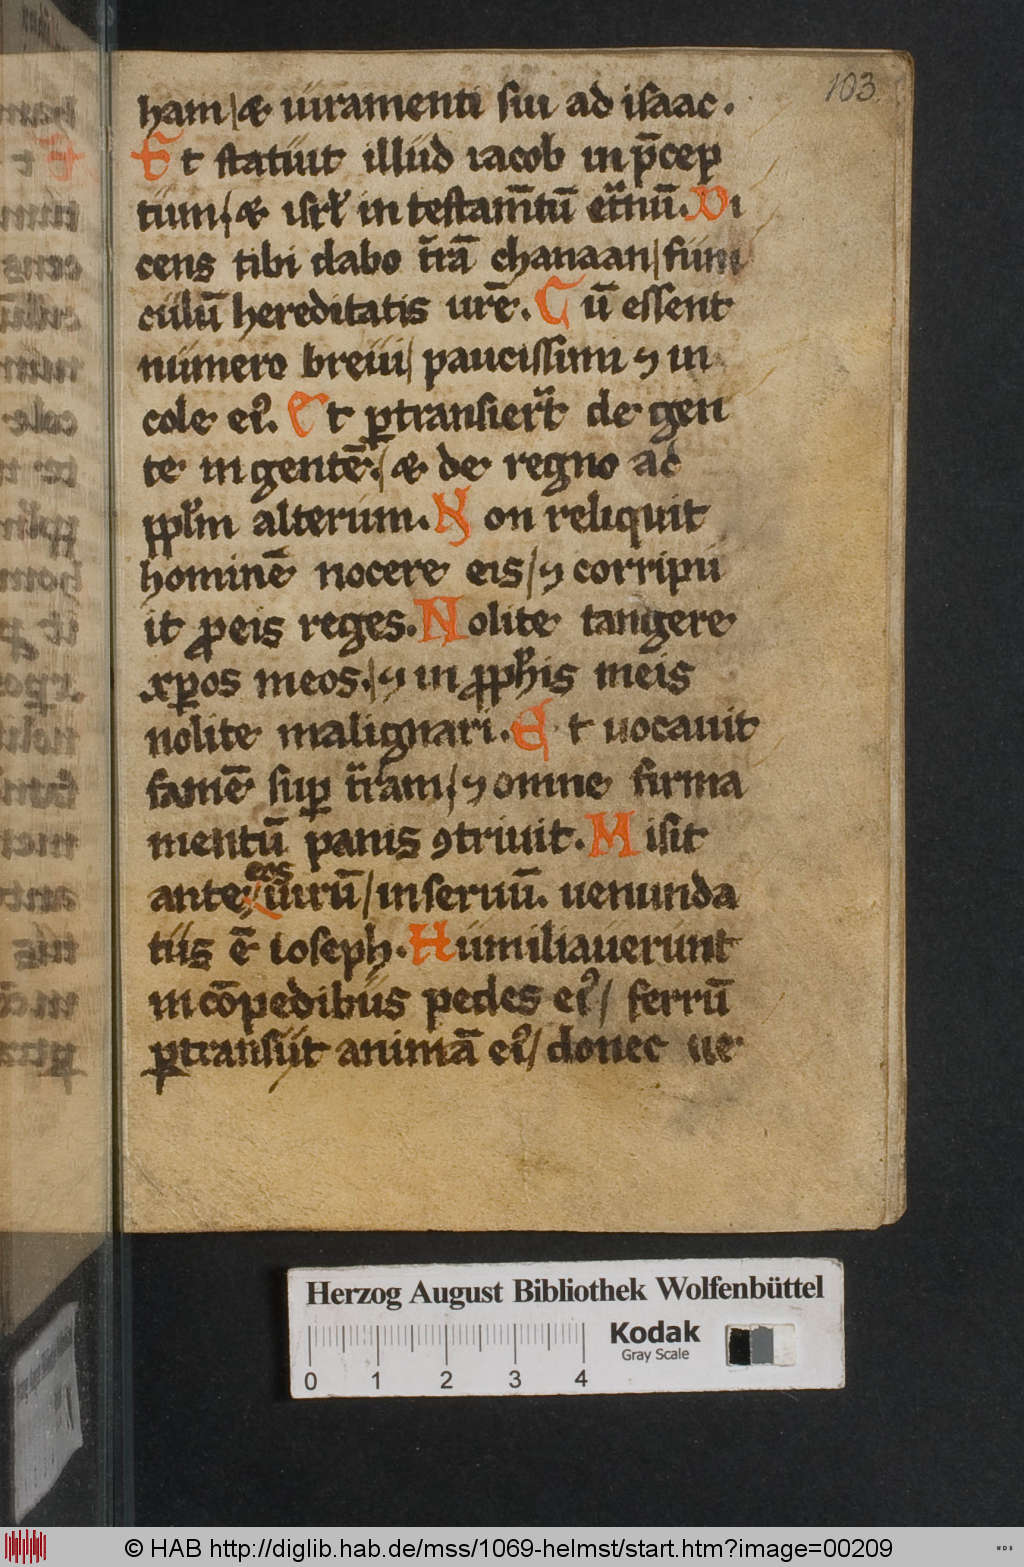 103
ham / & iuramenti sui ad isaac.
Et statuit illud iacob in p̄cep
tum / & isrł in testam̄tū et̄nū. Di
cens tibi dabo t̄rā chanaan / funi
culū hereditatis ur̄e. Cū essent
numero breui / paucissimi ⁊ in
cole ei᷒. Et ꝑtransier̄t de gen
te in gentē. / & de regno ad
ppłm alterum. Non reliquit
hominē nocere eis / ⁊ corripu
it ꝓ eis reges. Nolite tangere
xp̄os meos. / ⁊ in ꝓph̄is meis
nolite malignari. Et uocauit
famē suꝑ t̄ram / ⁊ omne firma
mentū panis ꝯtriuit. Misit
ante eos uirū / in seruū. uenunda
tus ē ioseph. Humiliauerunt
in cōpedibus pedes ei᷒ / ferrū
ꝑtransiit animā ei᷒ / donec ue
Herzog August Bibliothek Wolfenbüttel
Kodak
Gray Scale
0 1 2 3 4
© HAB http://diglib.hab.de/mss/1069-helmst/start.htm?image=00209